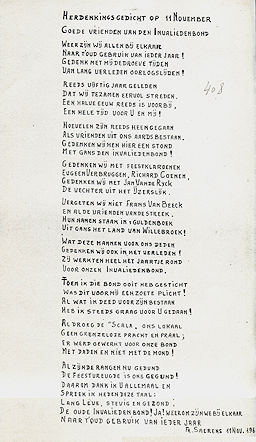 HERDENKINGSGEDICHT OP 11 NOVEMBER
GOEDE VRIENDEN VAN DEN INVALIEDENBOND
WEER ZYN WY ALLEN BY ELKAAR
NAAR T'OUD GEBRUIK VAN IEDER JAAR!
GEDENK MET MY DEDROEVE TYDEN
VAN LANG VERLEDEN OORLOGSLYDEN!
408
REEDS VYFTIG JAAR GELEDEN
DAT WY TEZAMEN EERVOL STREDEN.
EEN HALVE EEUW REEDS IS VOORBY,
EEN HELE TYD VOOR U EN MY!
HOEVELEN ZYN REEDS HEENGEGAAN
ALS VRIENDEN UIT ONS AARDS BESTAAN.
GEDENKEN WY MEN HIER EEN STOND
MET GANS DEN INVALIEDENBOND!
GEDENKEN WY MET FEESTKLAROENEN
EUGEEN VERBRUGGEN, RICHARD COENEN,
GEDENKEN WY MET JAN VANDE RYCK
DE VECHTER UIT HET YZERSLYK.
VERGETEN WY NIET FRANS VAN BEECK
EN AL DE VRIENDEN VAN DE STREEK.
HUN NAMEN STAAN IN 'T GULDENBOEK
UIT GANS HET LAND VAN WILLEBROEK!
WAT DEZE MANNEN VOOR ONS DEDEN
GEDENKEN WY OOK IN HET VERLEDEN!
ZY WERKTEN HEEL HET JAARTJE ROND
VOOR ONZEN INVALIEDENBOND.
TOEN IK DIE BOND OOIT HEB GESTICHT
WAS DIT VOOR MY EEN ZOETE PLICHT!
AL WAT IK DEED VOOR ZYN BESTAAN
HEB IK STEEDS GRAAG VOOR U GEDAAN!
AL DROEG DE "SCALA", ONS LOKAAL
GEEN GRENZELOZE PRACHT EN PRAAL;
ER WERD GEWERKT VOOR ONZE BOND
MET DADEN EN NIET MET DE MOND!
AL ZYN DE RANGEN NU GEDUND
DE FEESTVREUGDE IS ONS GEGUND!
DAAROM DANK IK U ALLEMAAL EN
SPREEK IK HEDEN DEZE TAAL:
LANG LEVE, STEVIG EN GEZOND,
DE OUDE INVALIEDEN BOND! JA! WEEROM ZYN WE BY ELKAAR
NAAR T'OUD GEBRUIK VAN IEDER JAAR
SAERENS 11 NOV.